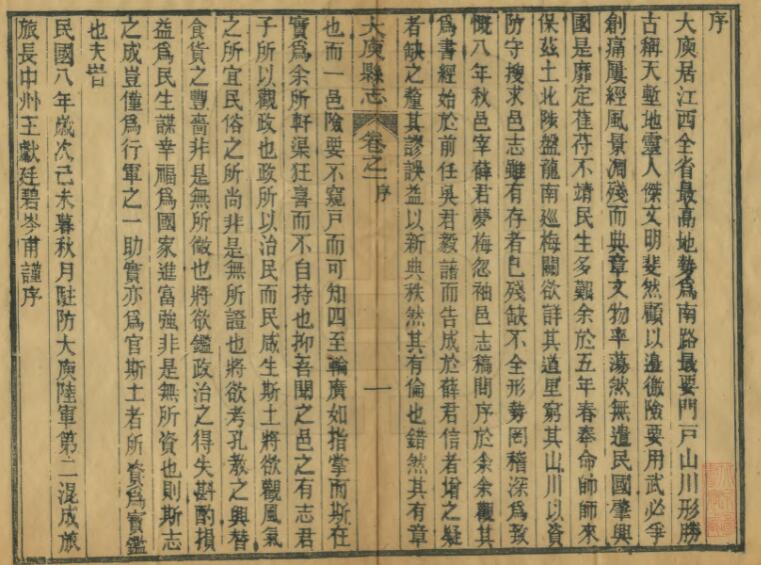 序
大庾居江西全省最高地勢爲南路最要門戶山川形勝
古稱天塹地靈人傑文明斐然顧以邉徼險要用武必爭
創痛屢經風景凋殘而典章文物率蕩然無遺民國肇興
國是靡定萑苻不靖民生多艱余於五年春奉命師師來
保茲土北陟盤龍南廵梅關欲詳其道里窮其山川以資
防守搜求邑志雖有存者已殘缺不全形勢罔稽深爲致
慨八年秋邑宰薛君夢梅忽袖邑志稿問序於余余觀其
爲書經始於前任吳君毅諳而告成於薛君信者增之疑
者缺之釐其謬誤益以新典秩然其有倫也錯然其有章
大庾縣志
卷之一
序
一
也而一邑險要不窺戸而可知四至輪廣如指掌而斯在
實爲余所軒渠狂喜而不自持也抑吾聞之邑之有志君
子所以觀政也政所以治民而民咸生斯土將欲觀風氣
之所宜民俗之所尚非是無所證也將欲考孔敎之興替
食貨之豐嗇非是無所徵也將欲鑑政治之得失斟酌損
益爲民生謀幸福爲國家進富強非是無所資也則斯志
之成豈僅爲行軍之一助實亦爲官斯土者所資爲寶鑑
也夫旹
民國八年歲次己未暮秋月駐防大庾陸軍第二混成旅
旅長中州王獻廷碧岑甫謹序